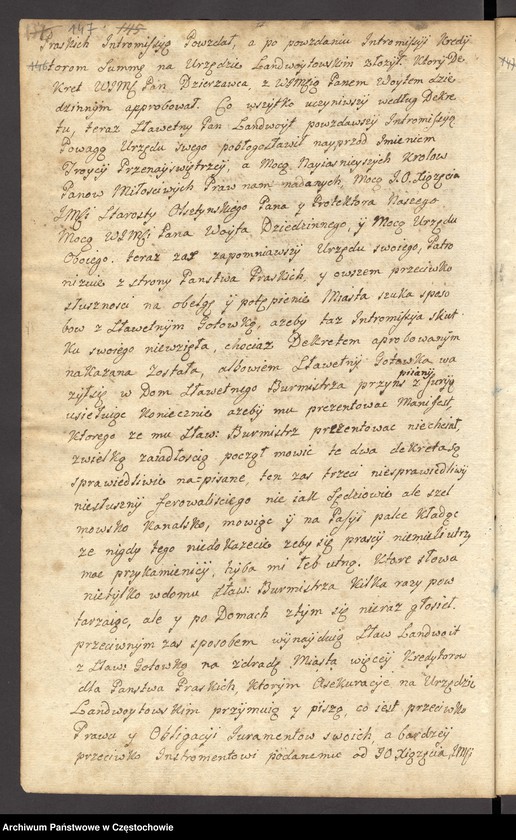 147 145
Praskich Intromissyą Powzdał, a po powzdaniu Intromissyi Kredy
torom Summę na Urzędzie Landwoytowskim złożył. Ktory De
kret WJMć Pan Dzierzawca, z WJMcią Panem Woytem dzie
dzinnym approbował. Co wszytko uczyniwszy według Dekre
tu, teraz Sławetny Pan Landwoyt powzdawszy Intromissyią
Powagą Urzędu swego pobłogosławił nayprzod Imieniem
Troycy Przenayświętrzey, a Mocą Nayiasnieyszych Krolow
Panow Miłosciwych Praw nam nadanych, Mocą J.O. Xiązęcia
JMci Starosty Olsztynskiego Pana y Protektora Naszego
Mocą WJMći Pana Woyta Dziedzinnego, ÿ Mocą Urzędu
Oboego. teraz zaś zapomniawszy Urzędu swoiego, Patro
nizuie z strony Panstwa Praskich, y owszem przeciwko
słusznosci na obelgę ÿ potępienie Miasta szuka sposo
bow z Sławetnym Gotowką, azeby taz Intromissyia skut
ku swoiego niewzięła, chociaz Dekretem aprobowanym
nakazana została, albowiem Sławetny Gotowka wa
zył się w Dom Sławetnego Burmistrza przyns z furyią
pisany
usiełuiąc koniecznie azeby mu prezentować Manifest
Ktorego ze mu Sław: Burmistrz prezentować niechciał,
z wielką zaiadłoscią począł mowić te dwa dekreta są
sprawiedliwie na=pisane, ten zas trzeci niesprawiedliwÿ
niesłusznÿ ferowaliscie go nie iak Sędziowie ale szel
mowsko Kanalsko, mowiąc ÿ na Pasÿi palce kładąc
ze nigdÿ tego niedokazecie zeby się prascy niemieli utrzy
mać przykamienicÿ, hÿba mi łeb utną. Ktore słowa
nietylko w domu Sław: Burmistrza kilka razy pow
tarzaiąc, ale y po Domach z tym się nieraz głosił.
przeciwnym zas sposobem wynayduią Sław Landwoit
z Sław: Gotowką na zdradę Miasta więcÿ Kredytorow
dla Panstwa Praskich, Ktorym Asekuracÿe na Urzędzie
Landwoytowskim przÿmuią y piszą, co iest przeciwko
Prawu y Obligacyi Iuramentow swoich, a bardzey
przeciwko Instromentowi podanemu od JO Xiązęcia JMći
Archiwum Państwowe w Częstochowie